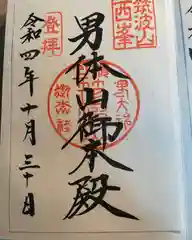 筑波山
西峯
男体山御本殿
登拝
令和四年十月三十日